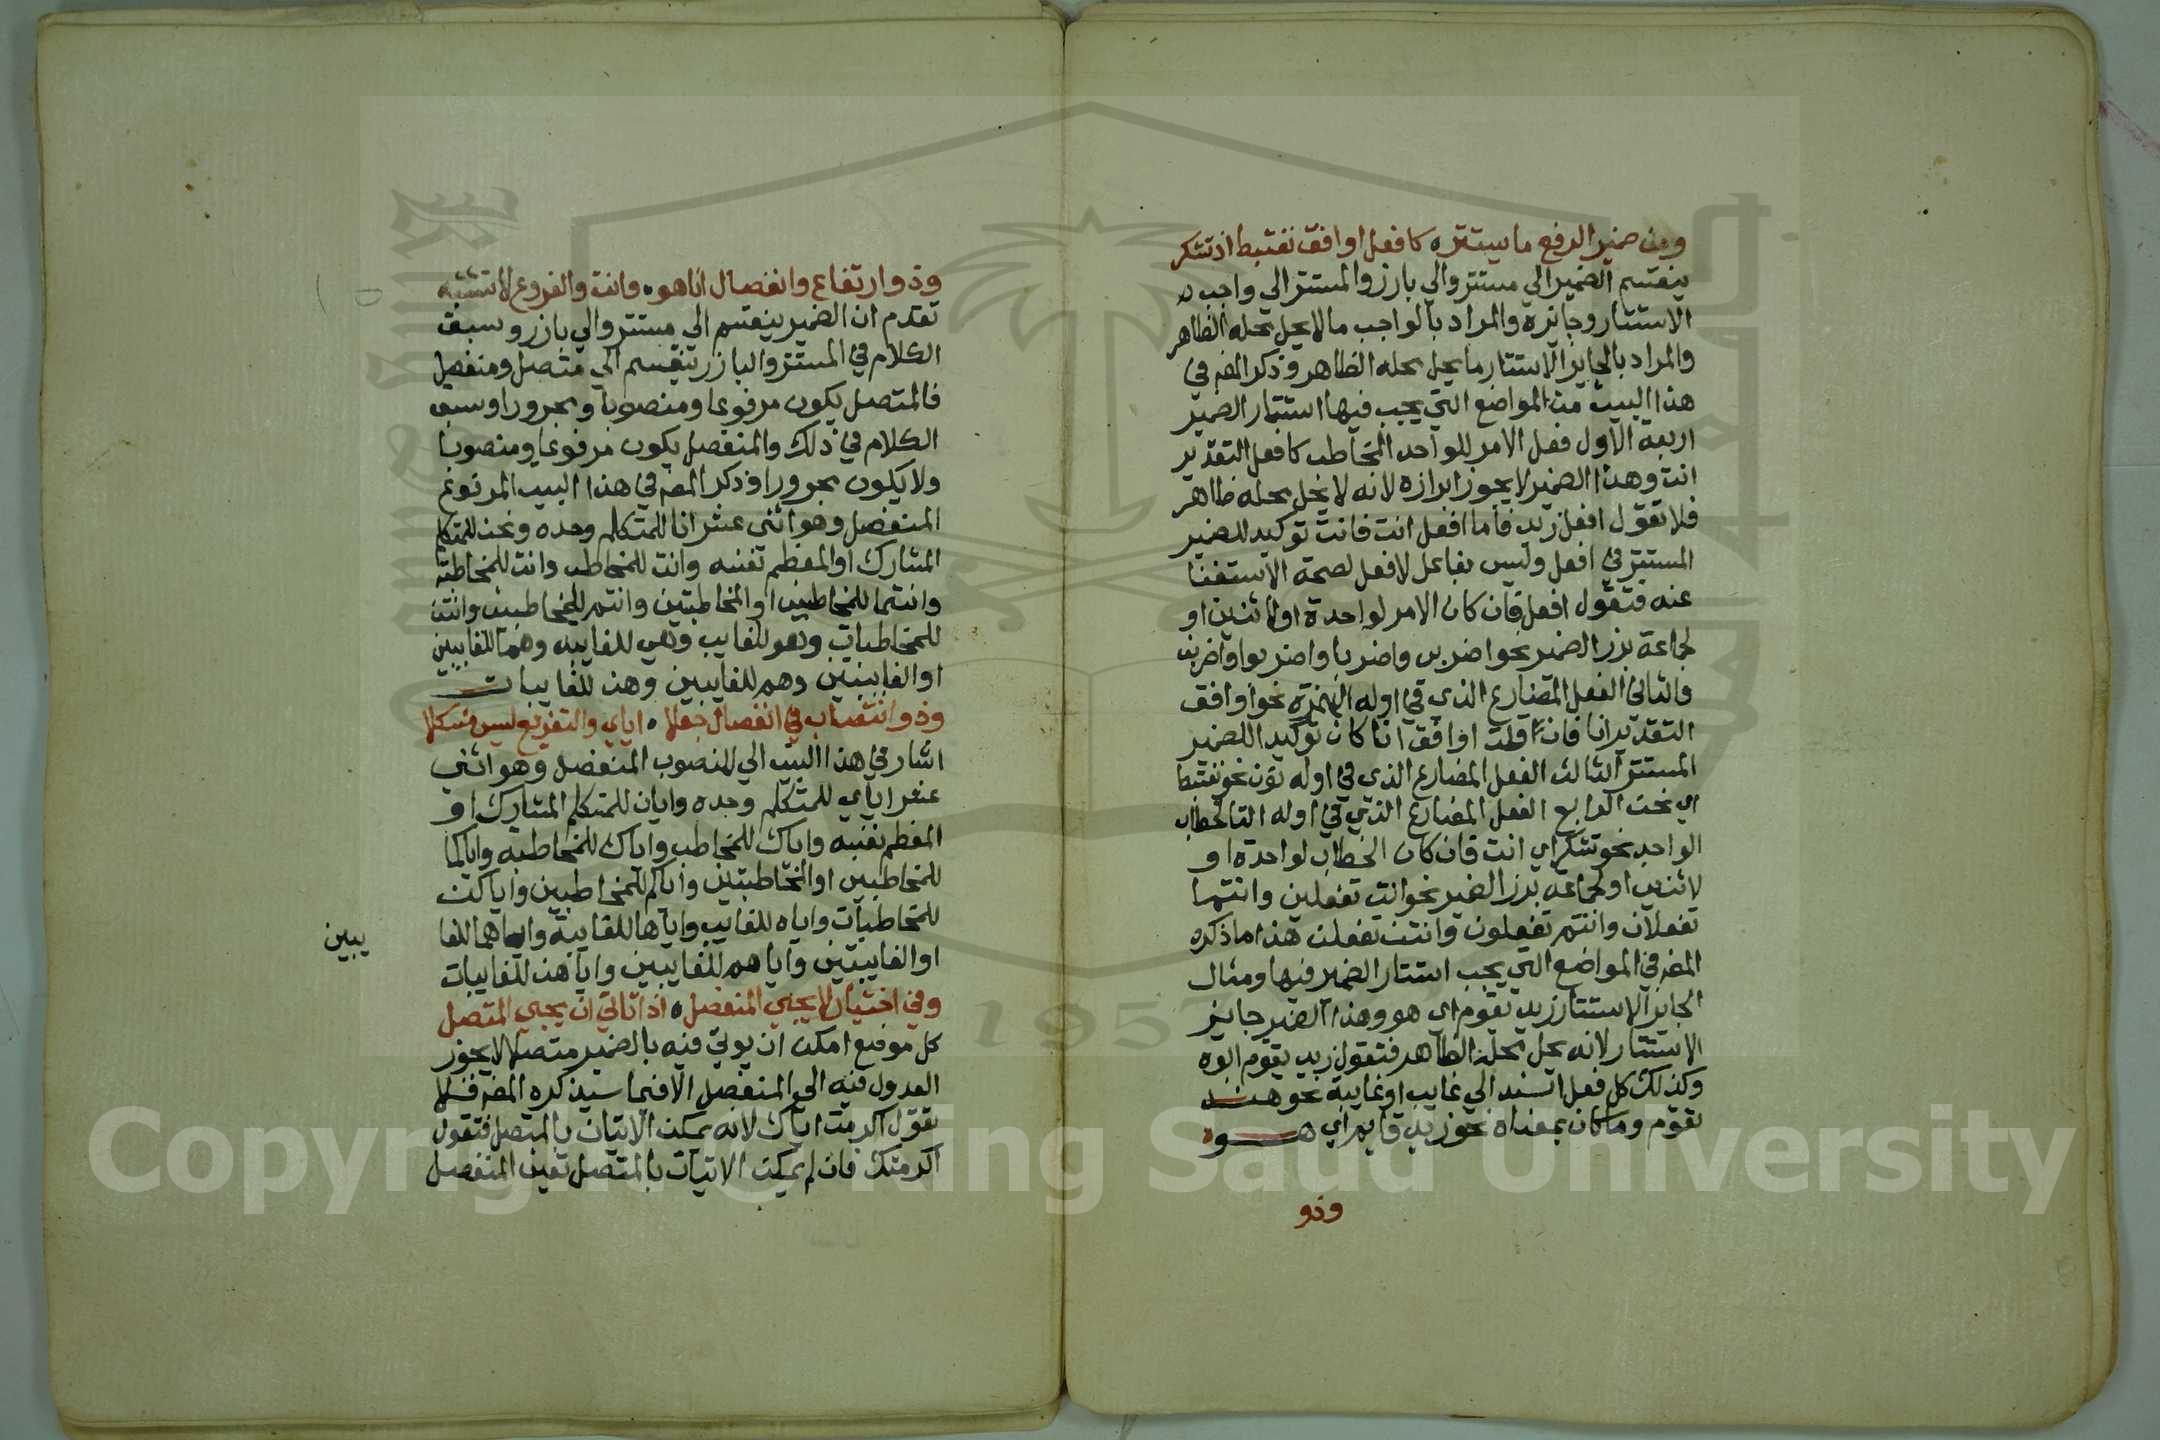 ومن ضمير الرفع ما يستتره كافعل اوافق نغتبط اذ تشكر
ينقسم الضمير الي مستتر والي بارز والمستتر الي واجب
الاستتار وجايزه والمراد بالواجب مالا يحل محله الظاهر
والمراد بالجايز الاستتار ما يحل محله الظاهر وذكر المص في
هذا البيت من المواضع التي يجب فيها استتار الضمير
اربعة الاول فعل الامر للواحد المخاطب كافعل التقدير
انت وهذا الضمير لا يجوز ابرازه لانه لا يحل محله ظاهر
فلا تقول افعل زيد فاما افعل انت فانت توكيد للضمير
المستتر في افعل وليس بفاعل لافعل لصحة الاستغنا
عنه فتقول افعل فان كان الامر لواحدة او لاثنين او
لجماعة برز الضمير نحو اضربي واضربا واضربوا واضربن
والثاني الفعل المضارع الذي في اوله الهمزه نحو اوافق
التقدير انا فان قلت اوافق انا كان توكيدا للضمير
المستتر الثالث الفعل المضارع الذي في اوله نون نحو نغتبط
اي نحن الرابع الفعل المضارع الذي في اوله التا لخطاب
الواحد نحو تشكر اي انت فان كان الخطاب لواحدة او
لاثنين او لجماعة برز الضمير نحو انت تفعلين وانتما
تفعلان وانتم تفعلون وانتن تفعلن هذا ما ذكره
المص في المواضع التي يجب استتار الضمير فيها ومثال
الجايز الاستتار زيد يقوم اي هو وهذا الضمير جايز
الاستتار لانه يحل محله الظاهر فتقول زيد يقوم ابوه
وكذلك كل فعل اسند الي غايب او غايبة نحو هند
تقوم وما كان بمعناه نحو زيد قايم اي هو
وذو
وذو ارتفاع وانفصال انا هو وانت والفروع لا تشتبه
تقدم ان الضمير ينقسم الي مستتر والي بارز وسبق
الكلام في المستتر والبارز ينقسم الي متصل ومنفصل
فالمتصل يكون مرفوعا ومنصوبا ومجرورا وسبق
الكلام في ذلك والمنفصل يكون مرفوعا ومنصوبا
ولا يكون مجرورا وذكر المص في هذا البيت المرفوع
المنفصل وهو اثنى عشر انا للمتكلم وحده ونحن للمتكلم
المشارك او المعظم نفسه وانت للمخاطب وانت للمخاطبة
وانتما للمخاطبين او المخاطبتين وانتم للمخاطبين وانتن
للمخاطبات وهو للغايب وهي للغايبه وهما للغايبين
او الغايبتين وهم للغايبين وهن للغايبات
وذو انتصاب في انفصال جعلا اياي والتفريع ليس مشكلا
اشار في هذا البيت الي المنصوب المنفصل وهو اثني
عشر اياي للمتكلم وحده وايانا للمتكلم المشارك او
المعظم نفسه واياك للمخاطب واياك للمخاطبه واياكما
للمخاطبين او المخاطبتين واياكم للمخاطبين واياكن
للمخاطبات واياه للغايب واياها للغايبة واياهما للغا
يبين
او الغايبتين واياهم للغايبين واياهن للغايبات
وفي اختيار لا يجي المنفصل اذا تاتي ان يجي المتصل
كل موضع امكن ان يوتي فيه بالضمير متصلا لا يجوز
العدول فيه الي المنفصل الا فيما سيذكره المص فلا
تقول اكرمت اياك لانه يمكن الاتيان بالمتصل فتقول
اكرمتك فان لم يمكن الاتيان بالمتصل تعين المنفصل
1957
Copyright © King Saud University